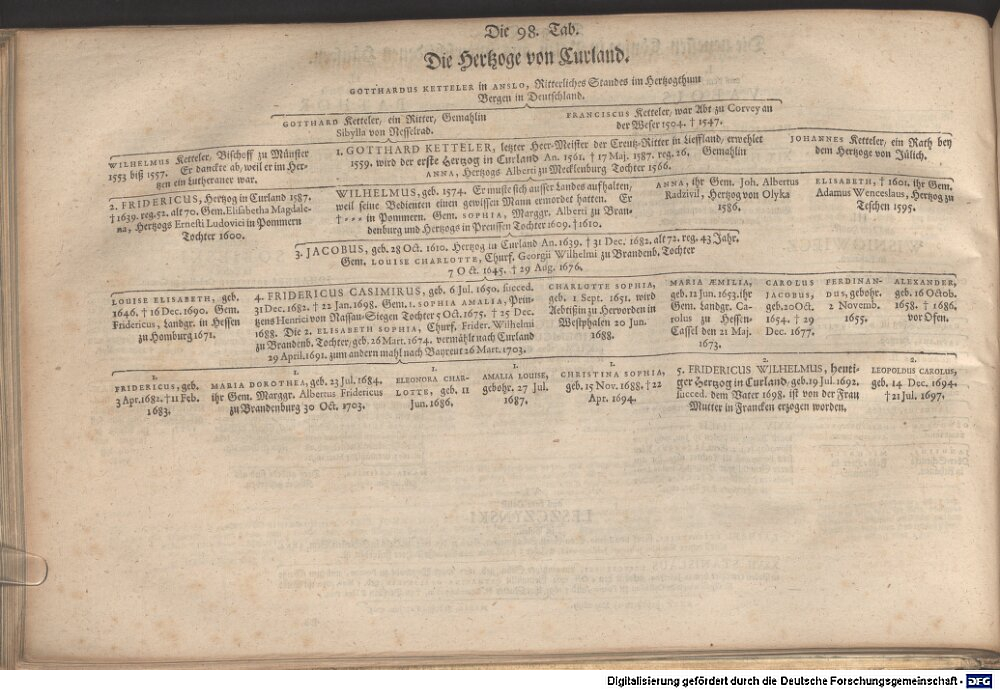 Die 98. Tab.
Die Hertzoge von Curland.
GOTTHARDUS KETTELER in ANSLO, Ritterliches Standes im Hertzogthum
Bergen in Deutschland.
GOTTHARD Ketteler, ein Ritter, Gemahlin
Sibylla von Nesselrad.
FRANCISCUS Ketteler, war Abt zu Corvey an
der Weser 1504. † 1547.
WILHELMUS Ketteler, Bischoff zu Münster
1553 biß 1557. Er danckte ab, weil er im Her-
tzen ein Lutheraner war.
1. GOTTHARD KETTELER, letzter Heer-Meister der Creutz-Ritter in Lieffland, erwehlet
1559. wird der erste Hertzog in Curland An. 1561. † 17 Maj. 1587. reg. 26. Gemahlin
ANNA, Hertzogs Alberti zu Mecklenburg Tochter 1566.
JOHANNES Ketteler, ein Rath bey
dem Hertzoge von Jülich.
2. FRIDERICUS, Hertzog in Curland 1587.
† 1639. reg. 52. alt 70. Gem. Elisabetha Magdale-
na, Hertzogs Ernesti Ludovici in Pommern
Tochter 1600.
WILHELMUS, geb. 1574. Er muste sich ausser Landes aufhalten,
weil seine Bedienten einen gewissen Mann ermordet hatten. Er
† - - - in Pommern. Gem. SOPHIA, Marggr. Alberti zu Bran-
denburg und Hertzogs in Preussen Tochter 1609. † 1610.
ANNA, ihr Gem. Joh. Albertus
Radzivil, Hertzog von Olyka
1586.
ELISABETH, † 1601. ihr Gem.
Adamus Wenceslaus, Hertzog zu
Teschen 1595.
3. JACOBUS, geb. 28 Oct. 1610. Hertzog in Curland An. 1639. † 31 Dec. 1682. alt 72. reg. 43 Jahr.
Gem. LOUISE CHARLOTTE, Churf. Georgii Wilhelmi zu Brandenb. Tochter
7 Oct. 1645. † 29 Aug. 1676.
LOUISE ELISABETH, geb.
1646. † 16 Dec. 1690. Gem.
Fridericus, Landgr. in Hessen
zu Homburg 1671.
4. FRIDERICUS CASIMIRUS, geb. 6 Jul. 1650. succed.
31 Dec. 1682. † 22 Jan. 1698. Gem. 1. SOPHIA AMALIA, Prin-
tzens Henrici von Nassau-Siegen Tochter 5 Oct. 1675. † 25 Dec.
1688. Die 2. ELISABETH SOPHIA, Churf. Frider. Wilhelmi
zu Brandenb. Tochter, geb. 26 Mart. 1674. vermählt nach Curland
29 April. 1691. zum andern mahl nach Bayreut 26 Mart. 1703.
CHARLOTTE SOPHIA,
geb. 1 Sept. 1651. wird
Aebtißin zu Hervorden in
Westphalen 20 Jun.
1688.
MARIA ÆMILIA,
geb. 12 Jun. 1653. ihr
Gem. Landgr. Ca-
rolus zu Hessen-
Cassel den 21 Maj.
1673.
CAROLUS
JACOBUS,
geb. 20 Oct.
1654. † 29
Dec. 1677.
FERDINAN-
DUS, gebohr.
2 Novemb.
1655.
ALEXANDER,
geb. 16 Octob.
1658. † 1686.
vor Ofen.
1.
FRIDERICUS, geb.
3 Apr. 1682. † 11 Feb.
1683.
1.
MARIA DOROTHEA, geb. 23 Jul. 1684.
ihr Gem. Marggr. Albertus Fridericus
zu Brandenburg 30 Oct. 1703.
1.
ELEONORA CHAR-
LOTTE, geb. 11
Jun. 1686.
1.
AMALIA LOUISE,
gebohr. 27 Jul.
1687.
1.
CHRISTINA SOPHIA,
geb. 15 Nov. 1688. † 22
Apr. 1694.
2.
5. FRIDERICUS WILHELMUS, heuti-
ger Hertzog in Curland, geb. 19 Jul. 1692.
succed. dem Vater 1698. ist von der Frau
Mutter in Francken erzogen worden.
2.
LEOPOLDUS CAROLUS,
geb. 14 Dec. 1694.
† 21 Jul. 1697.
Digitalisierung gefördert durch die Deutsche Forschungsgemeinschaft - DFG